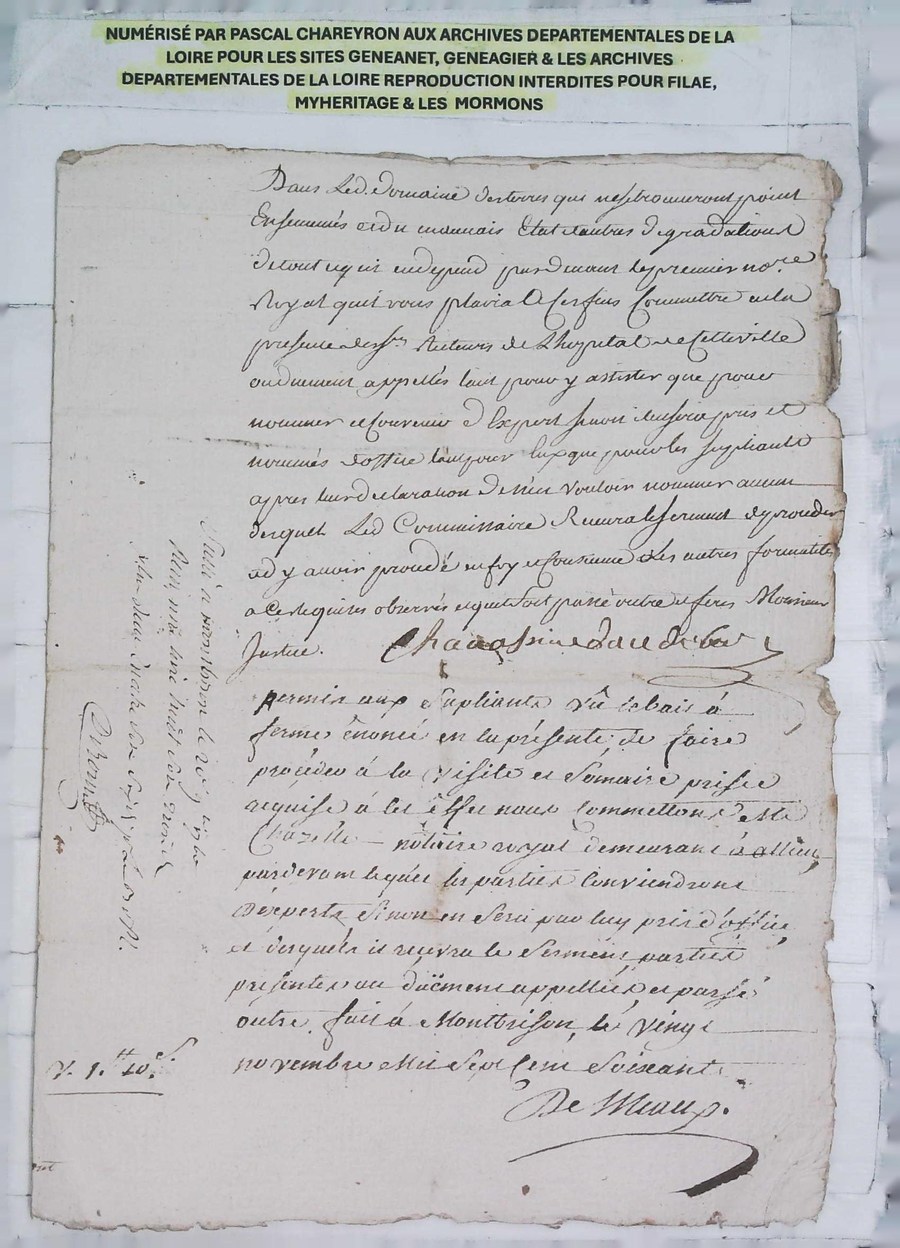 NUMÉRISÉ PAR PASCAL CHAREYRON AUX ARCHIVES DEPARTEMENTALES DE LA
LOIRE POUR LES SITES GENEANET, GENEAGIER & LES ARCHIVES
DEPARTEMENTALES DE LA LOIRE REPRODUCTION INTERDITES POUR FILAE,
MYHERITAGE & LES MORMONS
Dans Led. domaine des terres qui ne se trouveront point
Ensemencés et du mauvais Etat et autres degradations
de tout ce qui en depend pardevant le premier no.re
Royal qu'il vous plaira a Ces fins Commettre en la
presence des srs Recteurs de L'hopital de Cette ville
ou duement appellés tant pour y assister que pour
nommer et Convenir d'Expert sinon en sera pris et
nommés d'office tant pour Eux que pour les supliants
apres leur declaration de n'en vouloir nommer aucun
desquels Led Commissaire Recevra le serment de proceder
et d'y avoir procedé en foy et Conscience et les autres formalités
a ce requises observés et que soit passé outre et feres Monsieur
Justice.
permis aux Supliants Vû le bail à
ferme énoncé en la présente, de faire
procéder à la visite et Somaire prisée
requise à les effet nous Commettons Me
Chazelle notaire royal demeurant à
pardevant lequel les parties Conviendront
d'experts Sinon en sera par luy pris d'office
et desquels il recevra le Serment parties
présentes ou düement appellées et passé
outre, fait à Montbrison, le vingt
novembre Mil Sept Cent Soixante
De Meaux.
V. 1.tt 10.s